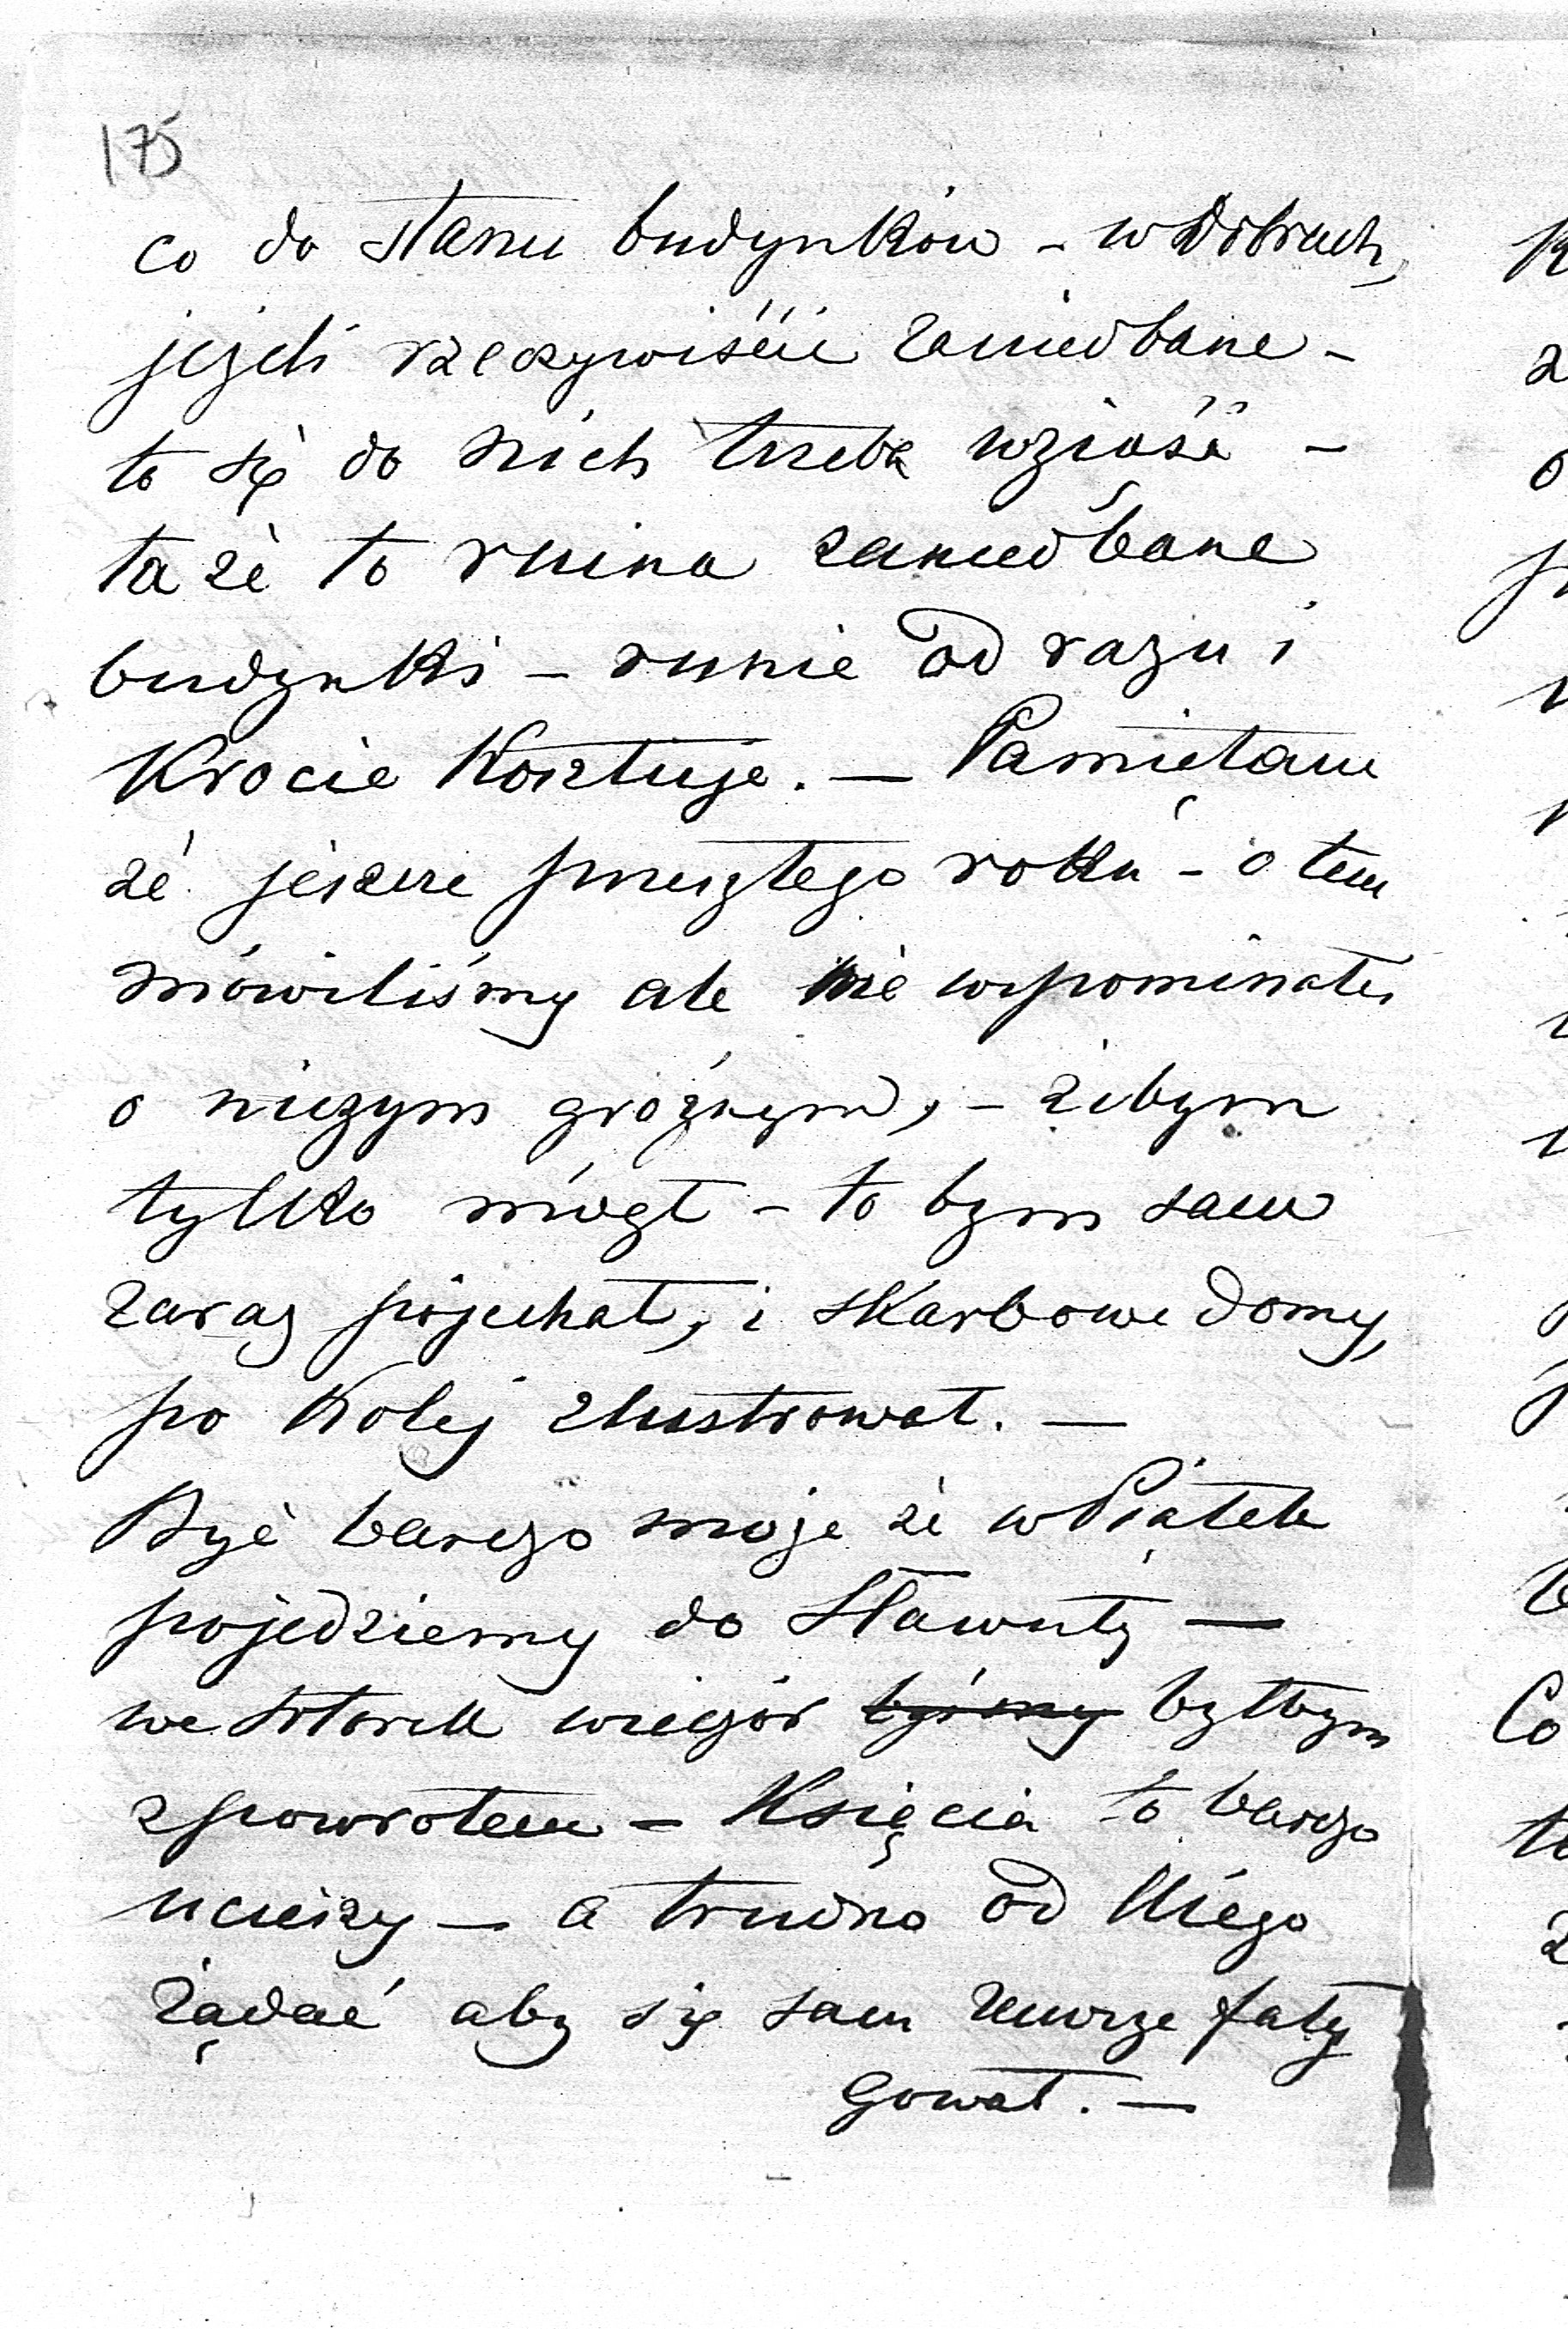 175
co do stanu budynków - w dobrach,
jeżeli rzeczywiście zaniedbane -
to się do nich trzeba wziąść -
ta że to ruina zaniedbane
budynki - runie od razu i
krocie kosztuje. — Pamiętam
że jeszcze przeszłego roku - o tem
mówiliśmy ale nie wspominałeś
o niczym groźnym, - żebym
tylko mógł - to bym sam
zaraz pojechał, i skarbowe domy,
po kolej zlustrował. —
Być barzo może że w Piątek
pojedziemy do Sławuty —
we Wtorek wieczór byśmy byłbym
z powrotem - Księcia to barzo
ucieszy — a trudno od Niego
żądać aby się sam zawsze faty
gował. —